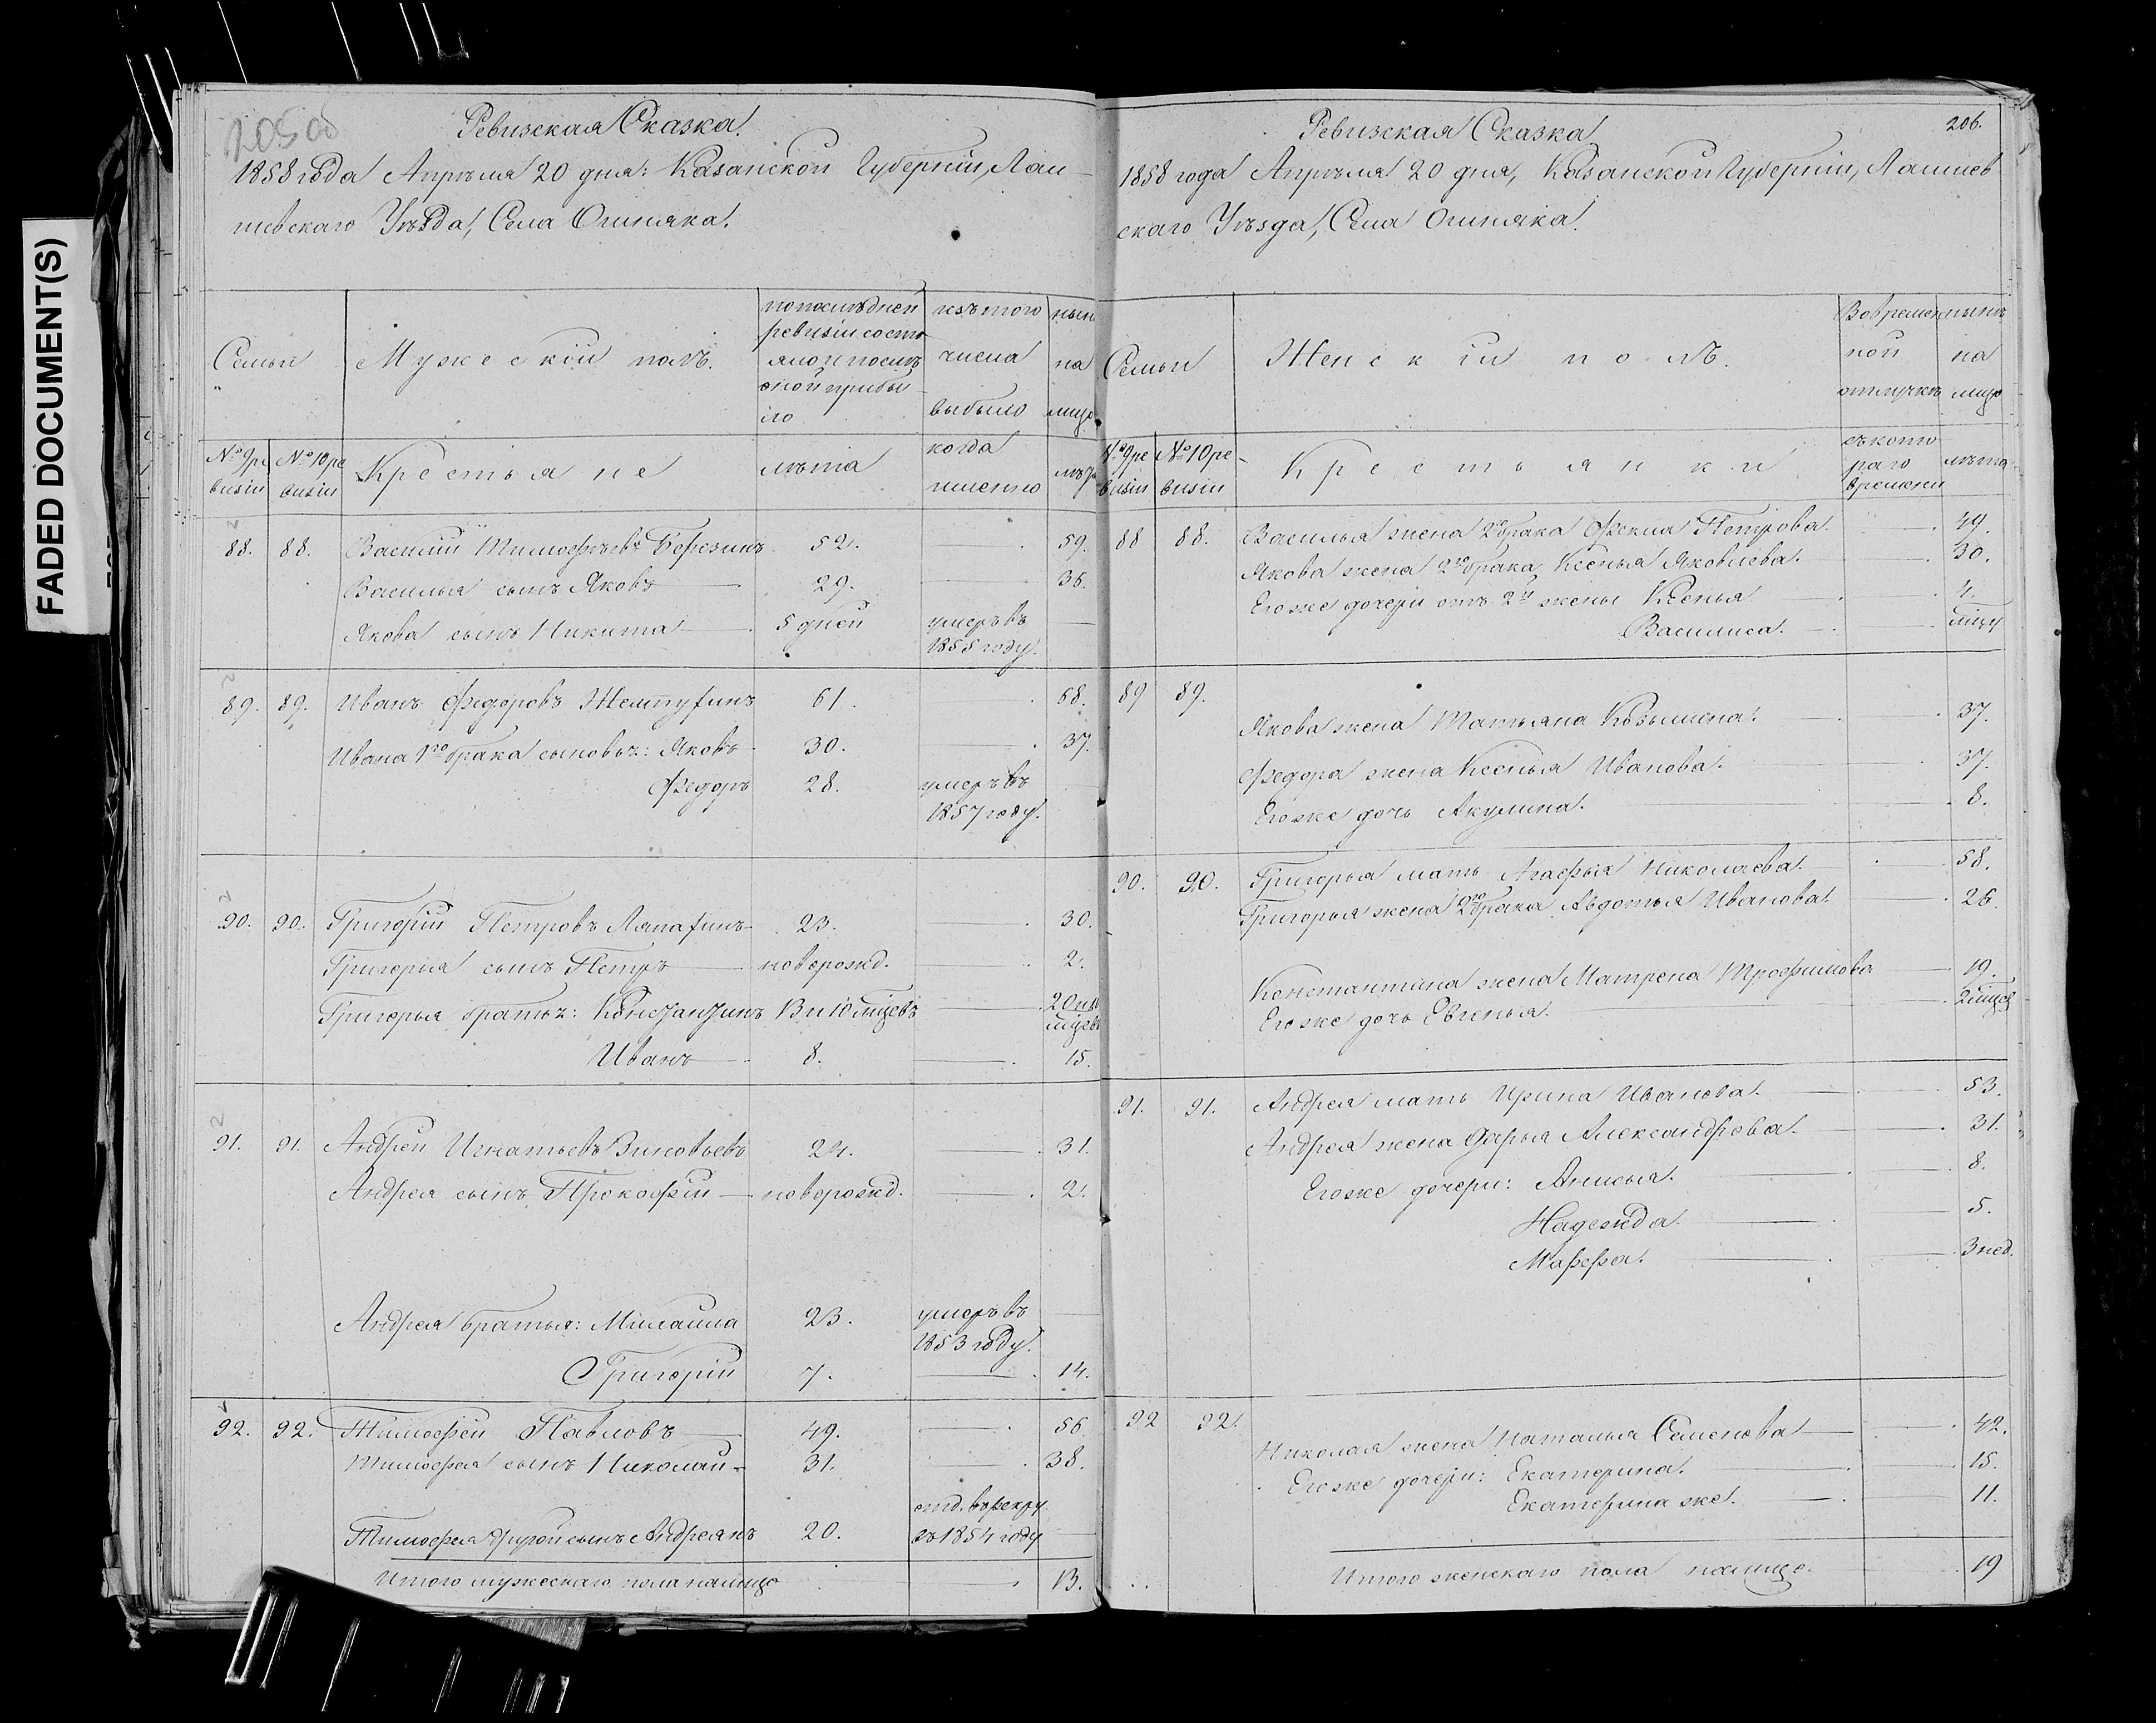 FADED DOCUMENT(S)
205 об
Ревизская Сказка.
1858 года Апрѣля 20 дня: Казанской Губерніи, Лаи-
шевскаго Уѣзда, Села Ошняка.
Семьи
Мужескій полъ.
по послѣдней
ревизіи состо
яло и послѣ
оной прибы
ло
изъ того
числа
выбыло
на
лицо
№ 9 ре
визіи
№ 10 ре
визіи
Крестьяне
лѣта
когда
именно
88. 88. Василій Тимофѣевъ Березинъ 52. 59.
Василья сынъ Яковъ 29. 36.
Якова сынъ Никита 5 дней умеръ въ
1855 году.
89. 89. Иванъ Федоровъ 61. 68.
Ивана 1го брака сыновья: Яковъ 30. 37.
Федоръ 28. умеръ въ
1857 году.
90. 90. Григорій Петровъ 23. 30.
Григорья сынъ Петръ новорожд. 2.
Григорья братья: Константинъ 13 и 10 мцевъ 20 и 10
мцевъ
Иванъ 8. 15.
91. 91. Андрей Игнатьевъ Зиновьевъ 24. 31.
Андрея сынъ Прокофій новорожд. 2.
Андрея братья: Михаила 23. умеръ въ
1853 году.
Григорій 7. 14.
92. 92. Тимофей Павловъ 49. 56.
Тимофея сынъ Николай 31. 38.
Тимофея другой сынъ Андреянъ 20. отд. въ рекру.
въ 1854 году
Итого мужескаго пола налицо 13.
206.
Ревизская Сказка
1858 года Апрѣля 20 дня, Казанской Губерніи, Лаишев
скаго Уѣзда, Села Ошняка.
Семьи
Женскій полъ.
Во времен
ной
отлучкѣ
нынѣ
на
лицо
№ 9 ре
визіи
№ 10 ре-
визіи
Крестьянки
съ кото
раго
времени
лѣта
88 88. Василья жена 2го брака Фекла Петрова. 49.
Якова жена 2го брака Ксенья Яковлева. 30.
Его же дочери отъ 2й жены Ксенья 4.
Василиса.
89 89.
Якова жена Татьяна Козьмина. 37.
Федора жена Ксенья Иванова. 37.
Его же дочь Акулина. 8.
90. 90. Григорья мать Агафья Николаева. 58.
Григорья жена 2го брака Авдотья Иванова. 26.
Константина жена Матрена Трофимова 19.
Его же дочь Евгенья.
91. 91. Андрея мать Ирина Иванова. 53.
Андрея жена Дарья Александрова. 31.
Его же дочери: Анисья. 8.
Надежда. 5.
Марфа. 3 нед.
92 92.
Николая жена Наталья Семенова 42.
Его же дочери: Екатерина. 15.
Екатерина же. 11.
Итого женскаго пола налицо. 19